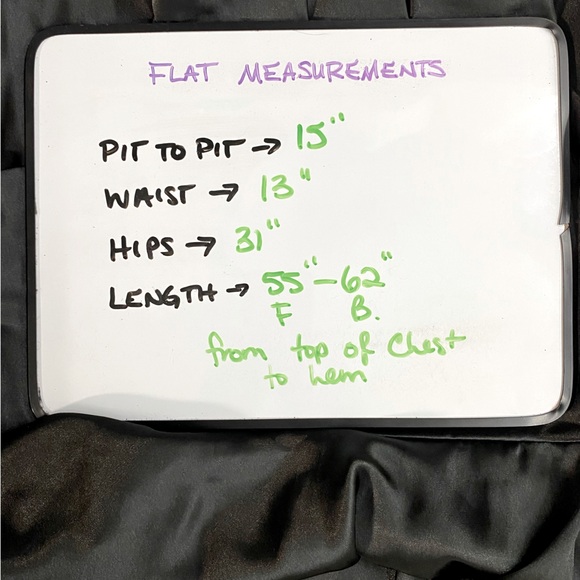 FLAT MEASUREMENTS
PIT TO PIT → 15"
WAIST → 13"
HIPS → 31"
LENGTH → 55" - 62"
F B.
from top of Chest
to hem